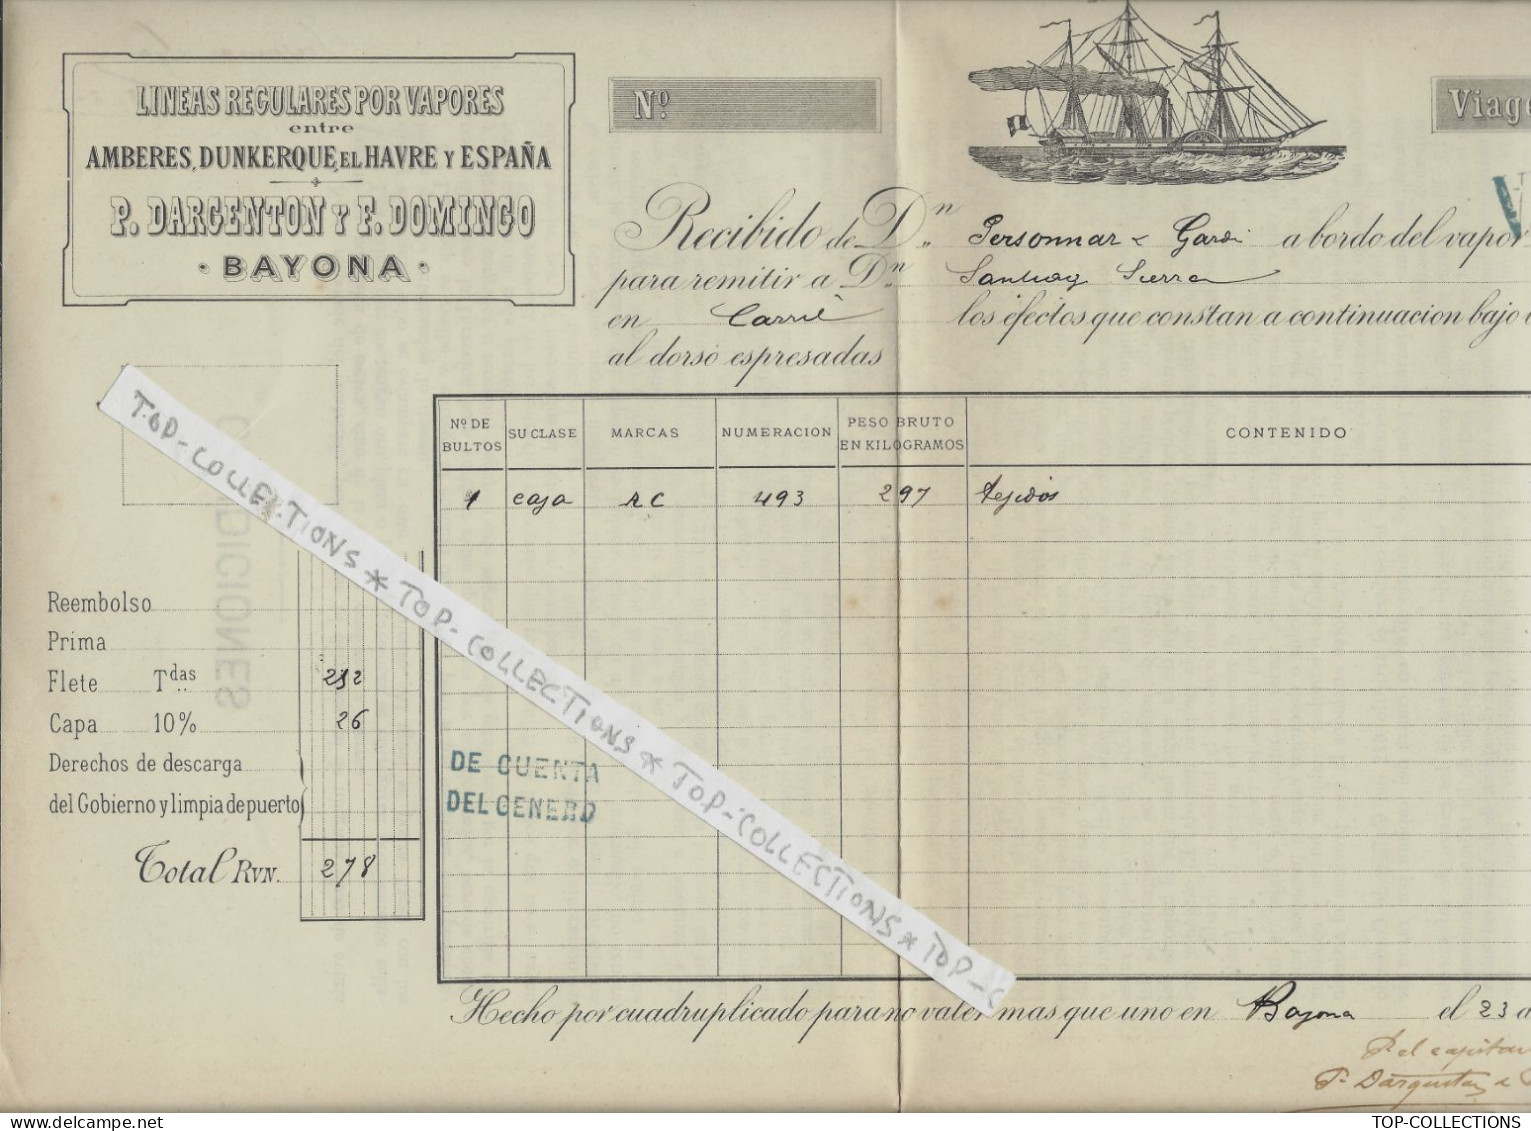 LINEAS REGULARES POR VAPORES
entre
AMBERES, DUNKERQUE, EL HAVRE Y ESPAÑA
P. DARGENTON Y F. DOMINGO
BAYONA
Nº
Viage
Recibido de Dn Personnaz & Gardi a bordo del vapor
para remitir a Dn Santiag Sierra
en los efectos que constan a continuacion bajo
al dorso espresadas
Nº DE BULTOS SU CLASE MARCAS NUMERACION PESO BRUTO EN KILOGRAMOS CONTENIDO
1 caja AC 493 297 tejidos
CONDICIONES
Reembolso
Prima
Flete Tdas 252
Capa 10% 26
Derechos de descarga
del Gobierno y limpia de puerto
Total RVN. 278
DE CUENTA
DEL GENERO
TOP-COLLECTIONS * TOP-COLLECTIONS * TOP-COLLECTIONS * TOP-C
Hecho por cuadruplicado para no valer mas que uno en Bayona el 23 d
P. el capitan
P. Dargenton &
TOP-COLLECTIONS